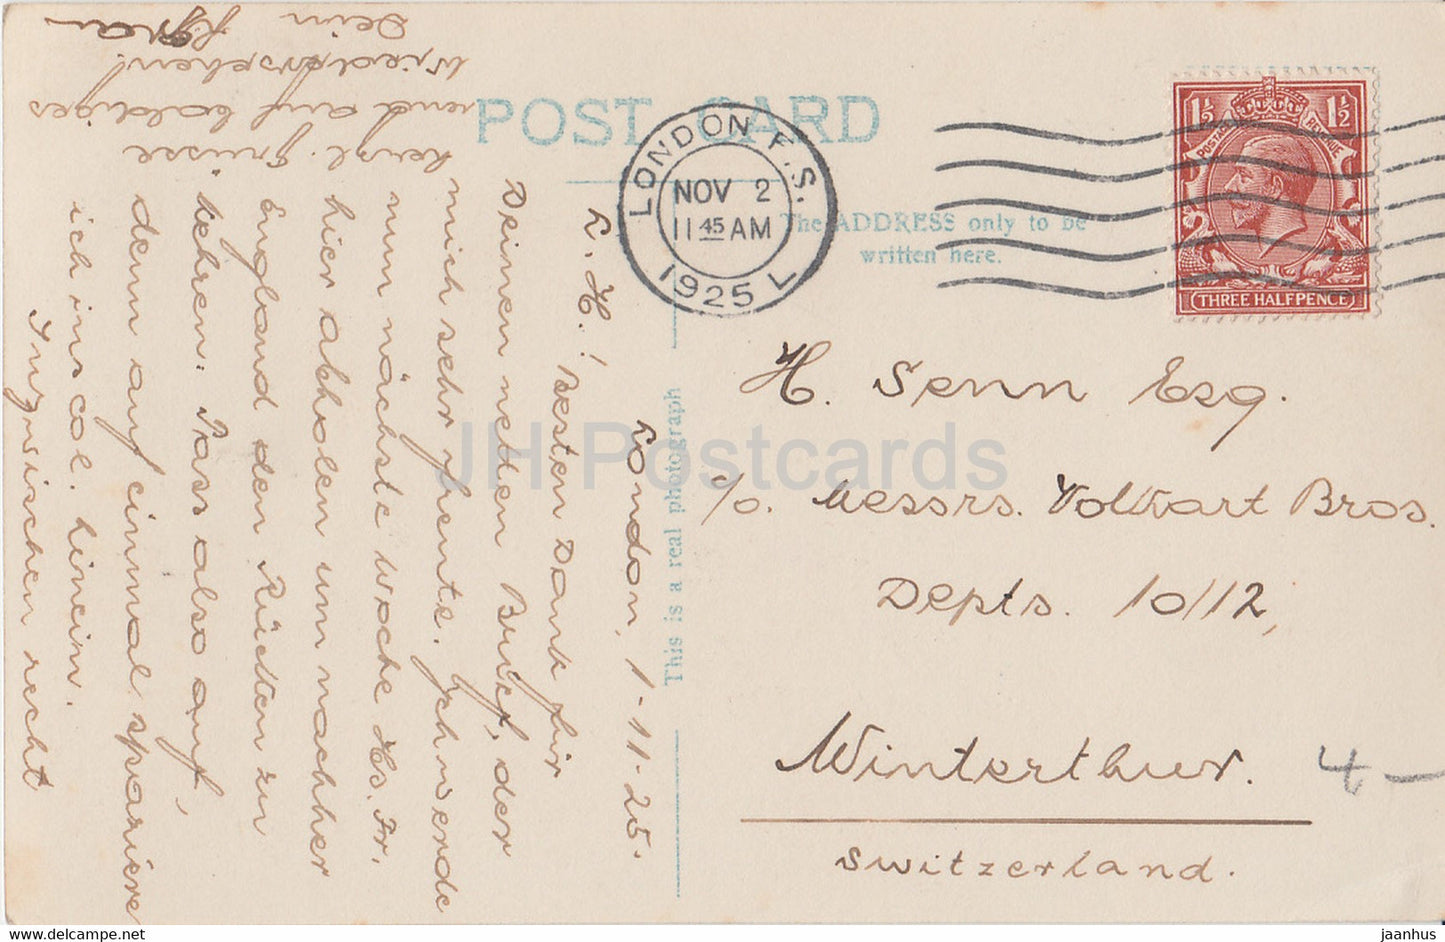 POST CARD
The ADDRESS only to be
written here.
LONDON F.S.
NOV 2
11 45 AM
1925 L
1½ 1½
POSTAGE REVENUE
THREE HALFPENCE
H. Senn Esq.
c/o. Messrs. Volkart Bros.
Depts. 10/12,
Winterthur.
Switzerland.
4 —
This is a real photograph
London, 1-11-25.
L. H.! Besten Dank für
Deinen netten Brief, der
mich sehr freute. Ich werde
nun nächste Woche Hs. Fr.
hier abholen um nachher
England den Rücken zu
kehren. Pass also auf,
denn auf einmal spaziere
ich ins Col. hinein.
Inzwischen recht
herzl. Grüsse
und auf baldiges
Wiedersehen!
Dein
JH Postcards
www.delcampe.net
jaanhus